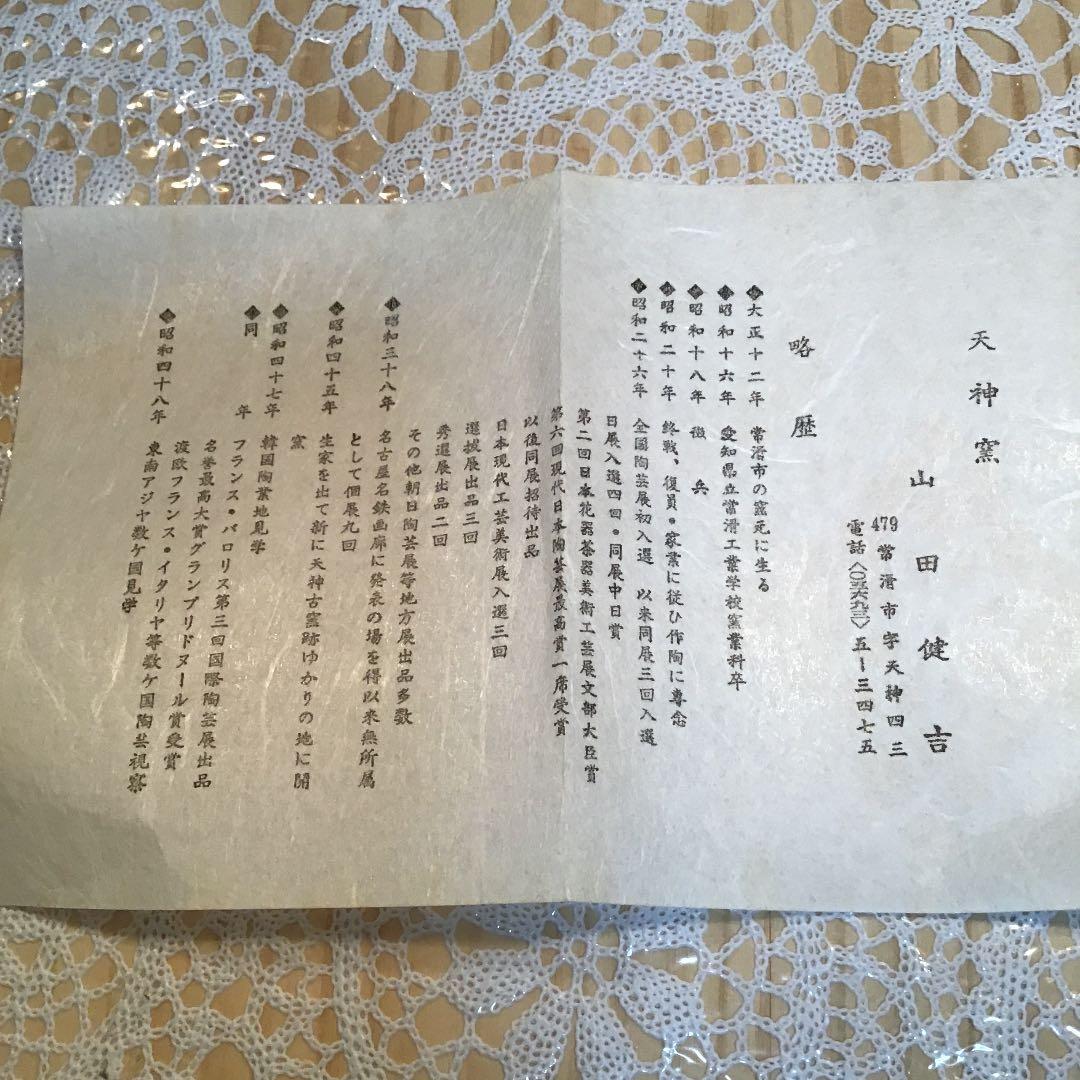 天神窯
山田健吉
479 常滑市字天神四三
電話〈〇五六九三〉五ー三四七五
略歴
大正十二年 常滑市の窯元に生る
昭和十六年 愛知県立常滑工業学校窯業科卒
昭和十八年 徴兵
昭和二十年 終戦、復員・家業に従ひ作陶に専念
昭和二十六年 全国陶芸展初入選 以来同展三回入選
日展入選四回・同展中日賞
第二回日本花器茶器美術工芸展文部大臣賞
第六回現代日本陶芸展最高賞一席受賞
以後同展招待出品
日本現代工芸美術展入選三回
選抜展出品三回
秀選展出品二回
その他朝日陶芸展等地方展出品多数
昭和三十八年 名古屋名鉄画廊に発表の場を得以来無所属
として個展九回
昭和四十五年 生家を出て新に天神古窯跡ゆかりの地に開
窯
昭和四十七年 韓国陶業地見学
同年 フランス・バロリス第三回国際陶芸展出品
名誉最高大賞グランプリドヌール賞受賞
渡欧フランス・イタリヤ等数ケ国陶芸視察
昭和四十八年 東南アジヤ数ケ国見学